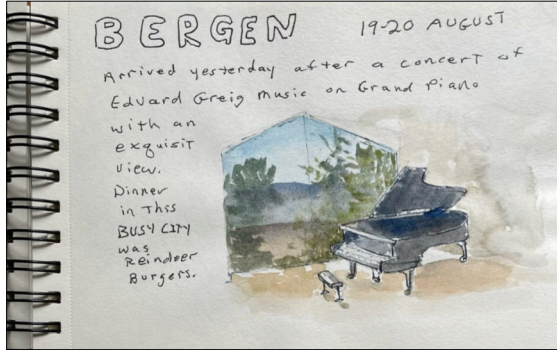 BERGEN 19-20 AUGUST
Arrived yesterday after a concert of
Edvard Greig Music on Grand Piano
with an
exquisit
view.
Dinner
in This
BUSY CITY
was
Reindeer
Burgers.